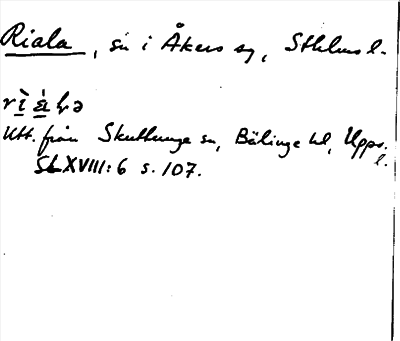 Riala, sn i Åkers sg, Sthlms l.
Utt. från Skuttunge sn, Bälinge hd, Upps. l.
SL XVIII:6 s. 107.